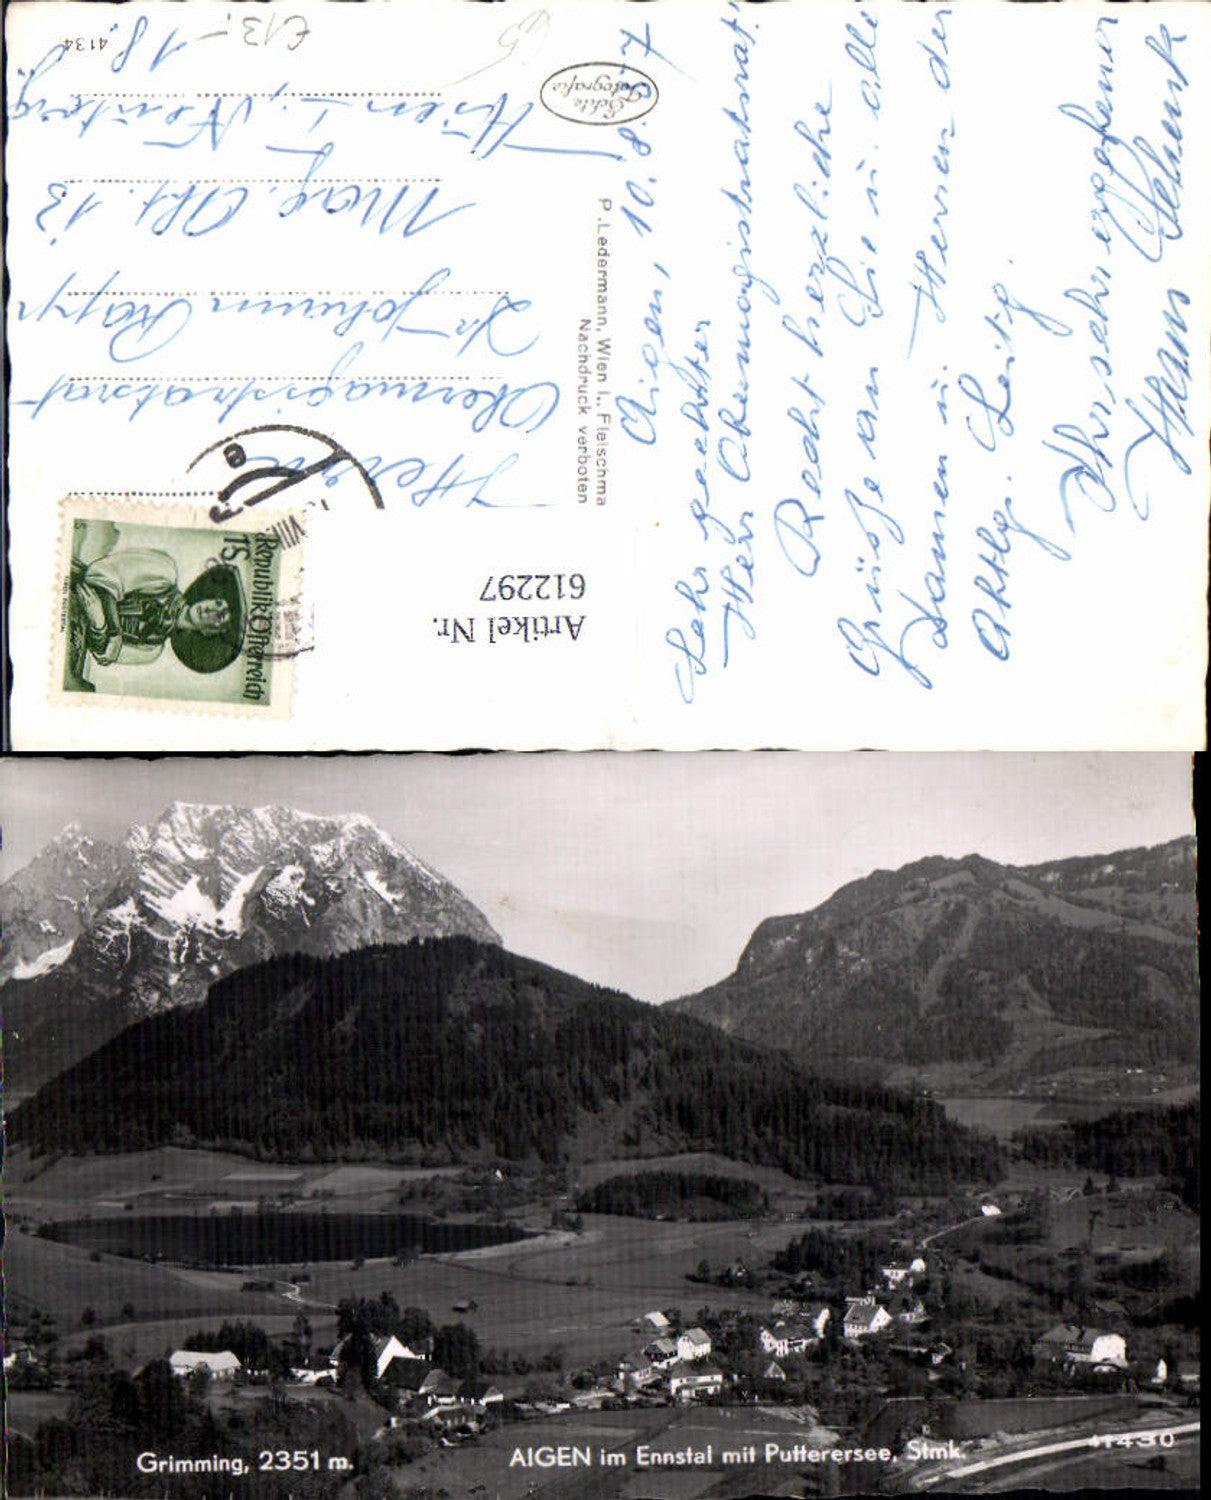 Aigen, 10.8.57
Sehr geehrter
Herr Obermagistratsrat!
Recht herzliche
Grüße an Sie u. alle
Damen u. Herren der
Abtlg. Leitg.
Ihr sehr ergebener
Hans Schenk
P. Ledermann, Wien I., Fleischma
Nachdruck verboten
Echte
Fotografie
4134
€13,-
Herrn
Obermagistratsrat
Dr Johann Rapp
Mag. Abt. 13
Wien I.,
18.
Republik Österreich
1S
Artikel Nr.
612297
Grimming, 2351 m.
AIGEN im Ennstal mit Putterersee, Stmk.
41430